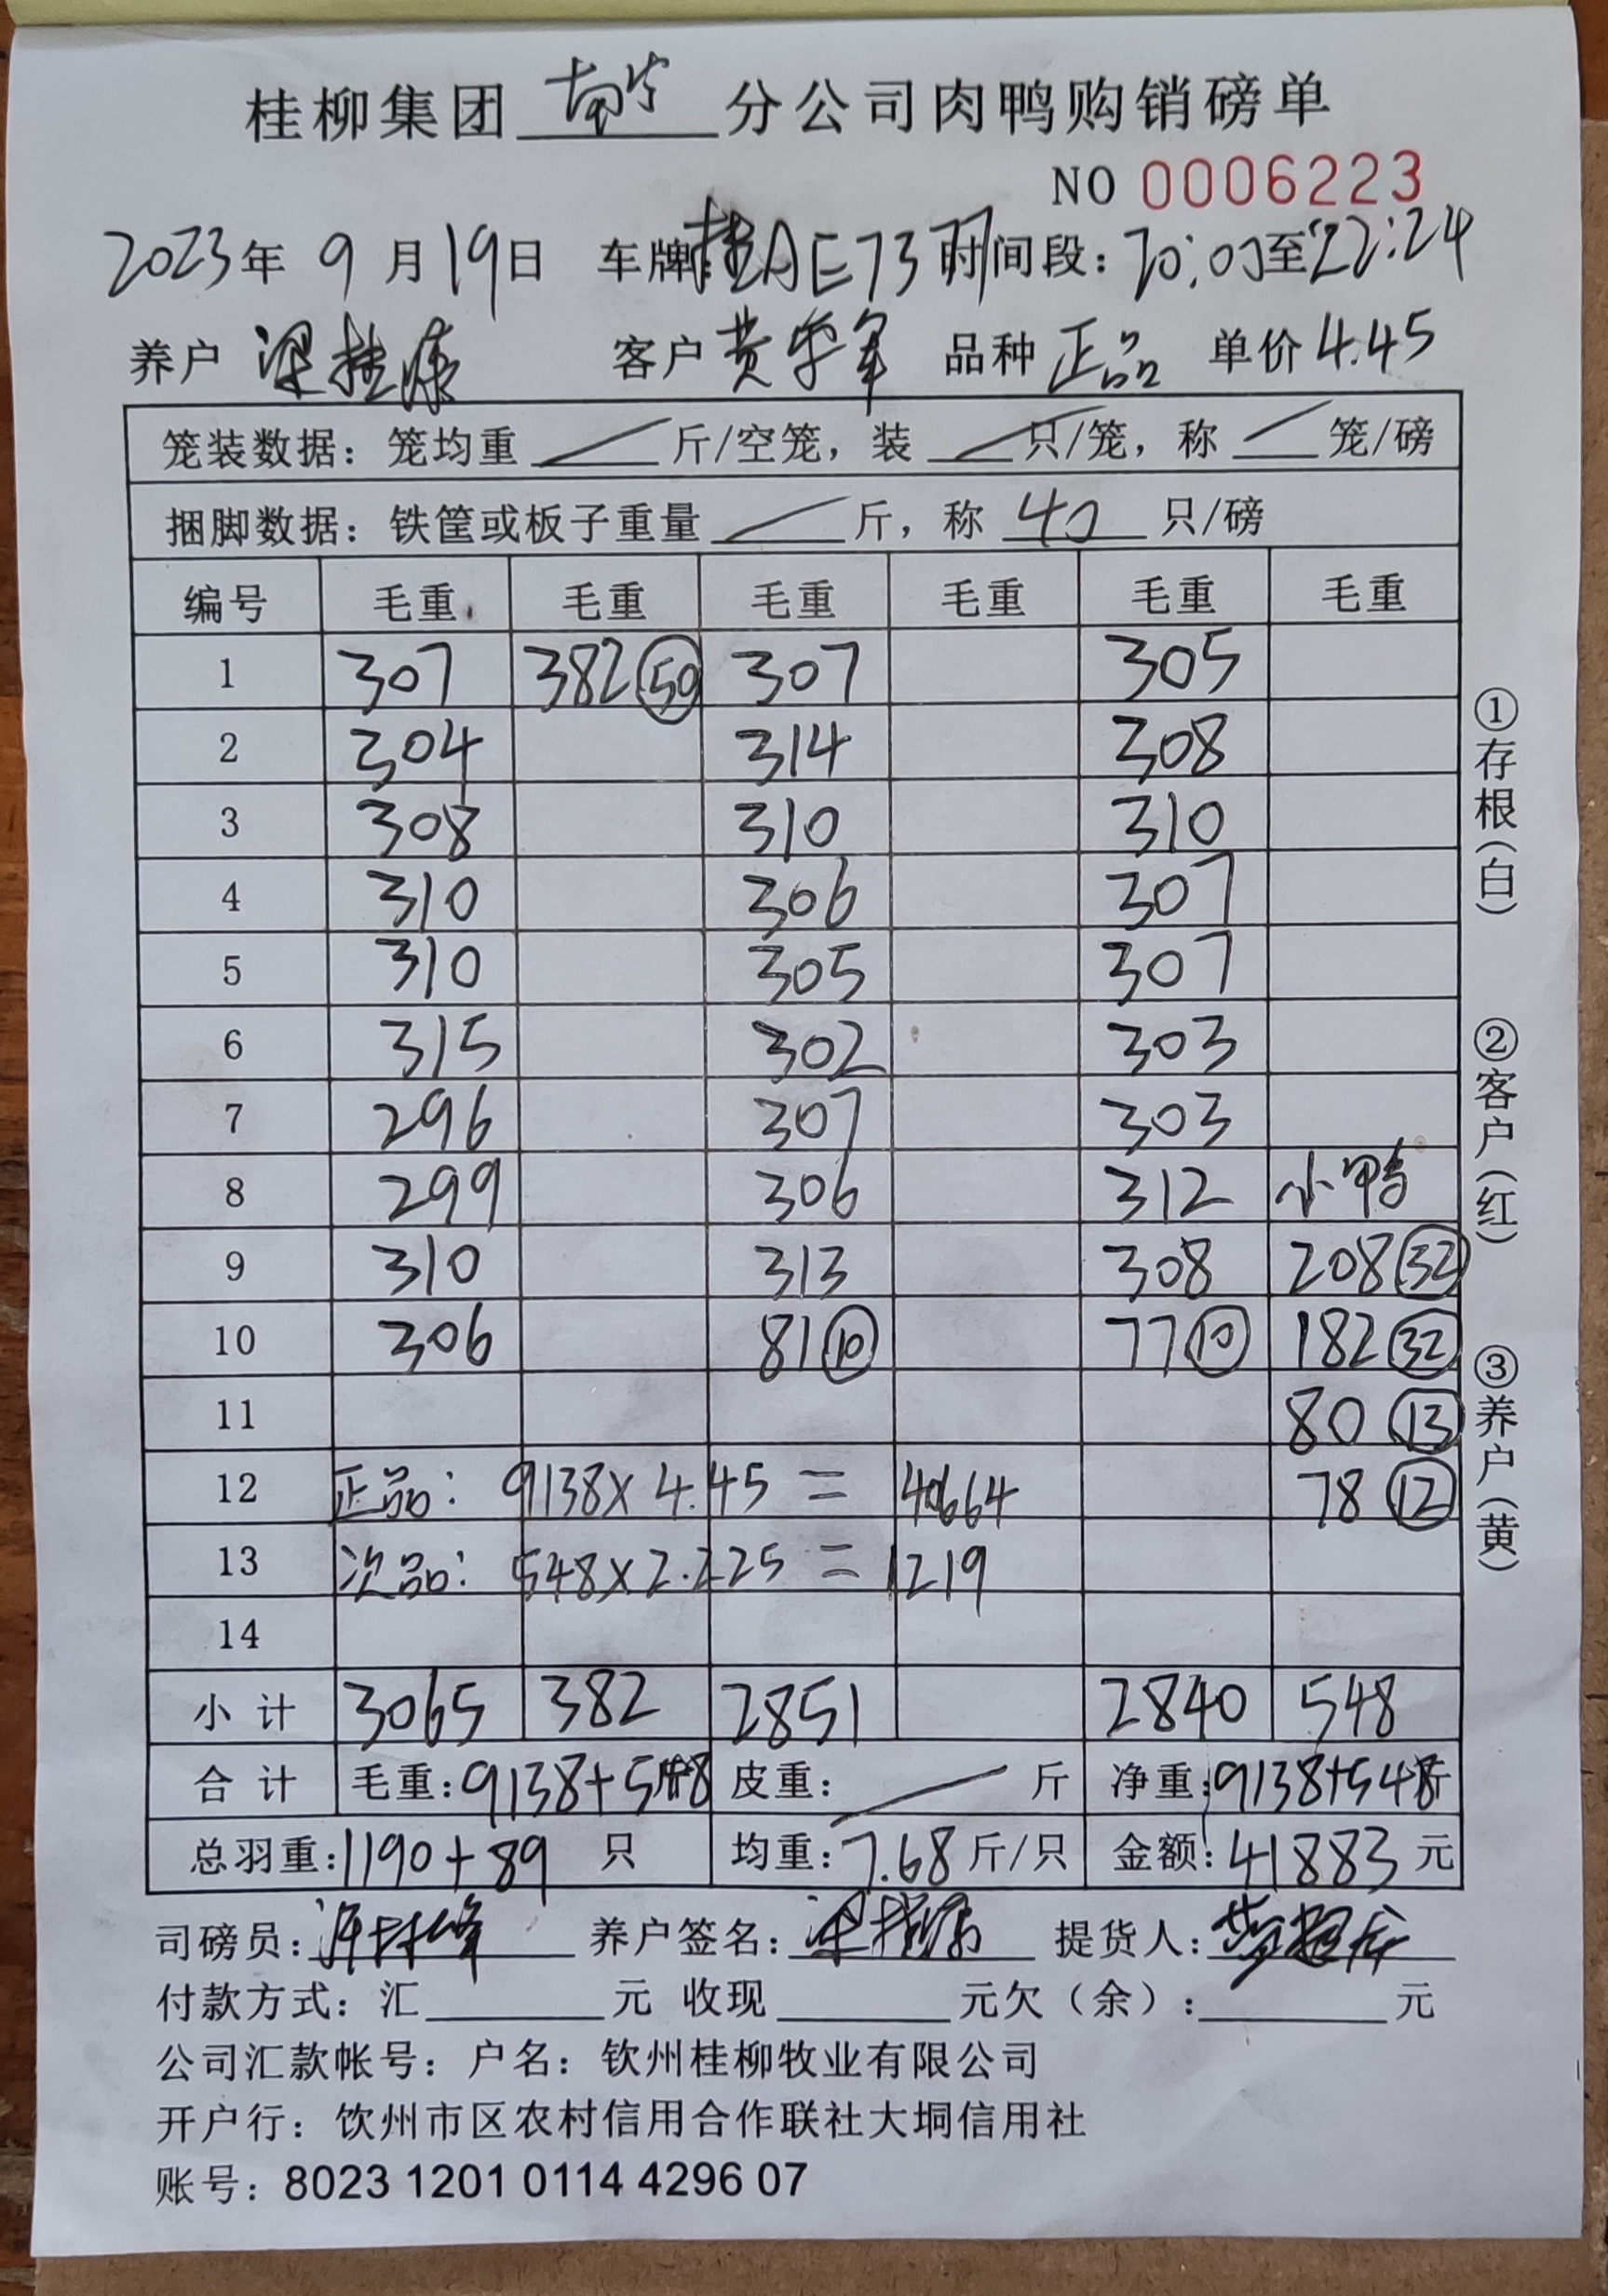 桂柳集团 南宁 分公司肉鸭购销磅单
NO 0006223
2023年 9月19日 车牌:桂AE73 时间段:20:00至22:24
养户 梁桂康 客户 黄学军 品种 正品 单价 4.45
笼装数据:笼均重 / 斤/空笼,装 / 只/笼,称 / 笼/磅
捆脚数据:铁筐或板子重量 / 斤,称 40 只/磅
编号 毛重 毛重 毛重 毛重 毛重 毛重
1 307 382 50 307 305
2 304 314 308
3 308 310 310
4 310 306 307
5 310 305 307
6 315 302 303
7 296 307 303
8 299 306 312 小鸭
9 310 313 308 208 32
10 306 81 10 77 10 182 32
11 80 13
12 正品: 9138×4.45 = 40664 78 12
13 次品: 548×2.225 = 1219
14
小计 3065 382 2851 2840 548
合计 毛重:9138+548 皮重: / 斤 净重:9138+548斤
总羽重:1190+89 只 均重:7.68斤/只 金额:41883元
司磅员: 养户签名:梁桂康 提货人:
付款方式:汇 元 收现 元欠(余): 元
公司汇款帐号:户名:钦州桂柳牧业有限公司
开户行:饮州市区农村信用合作联社大垌信用社
账号:8023 1201 0114 4296 07
①存根(白)
②客户(红)
③养户(黄)